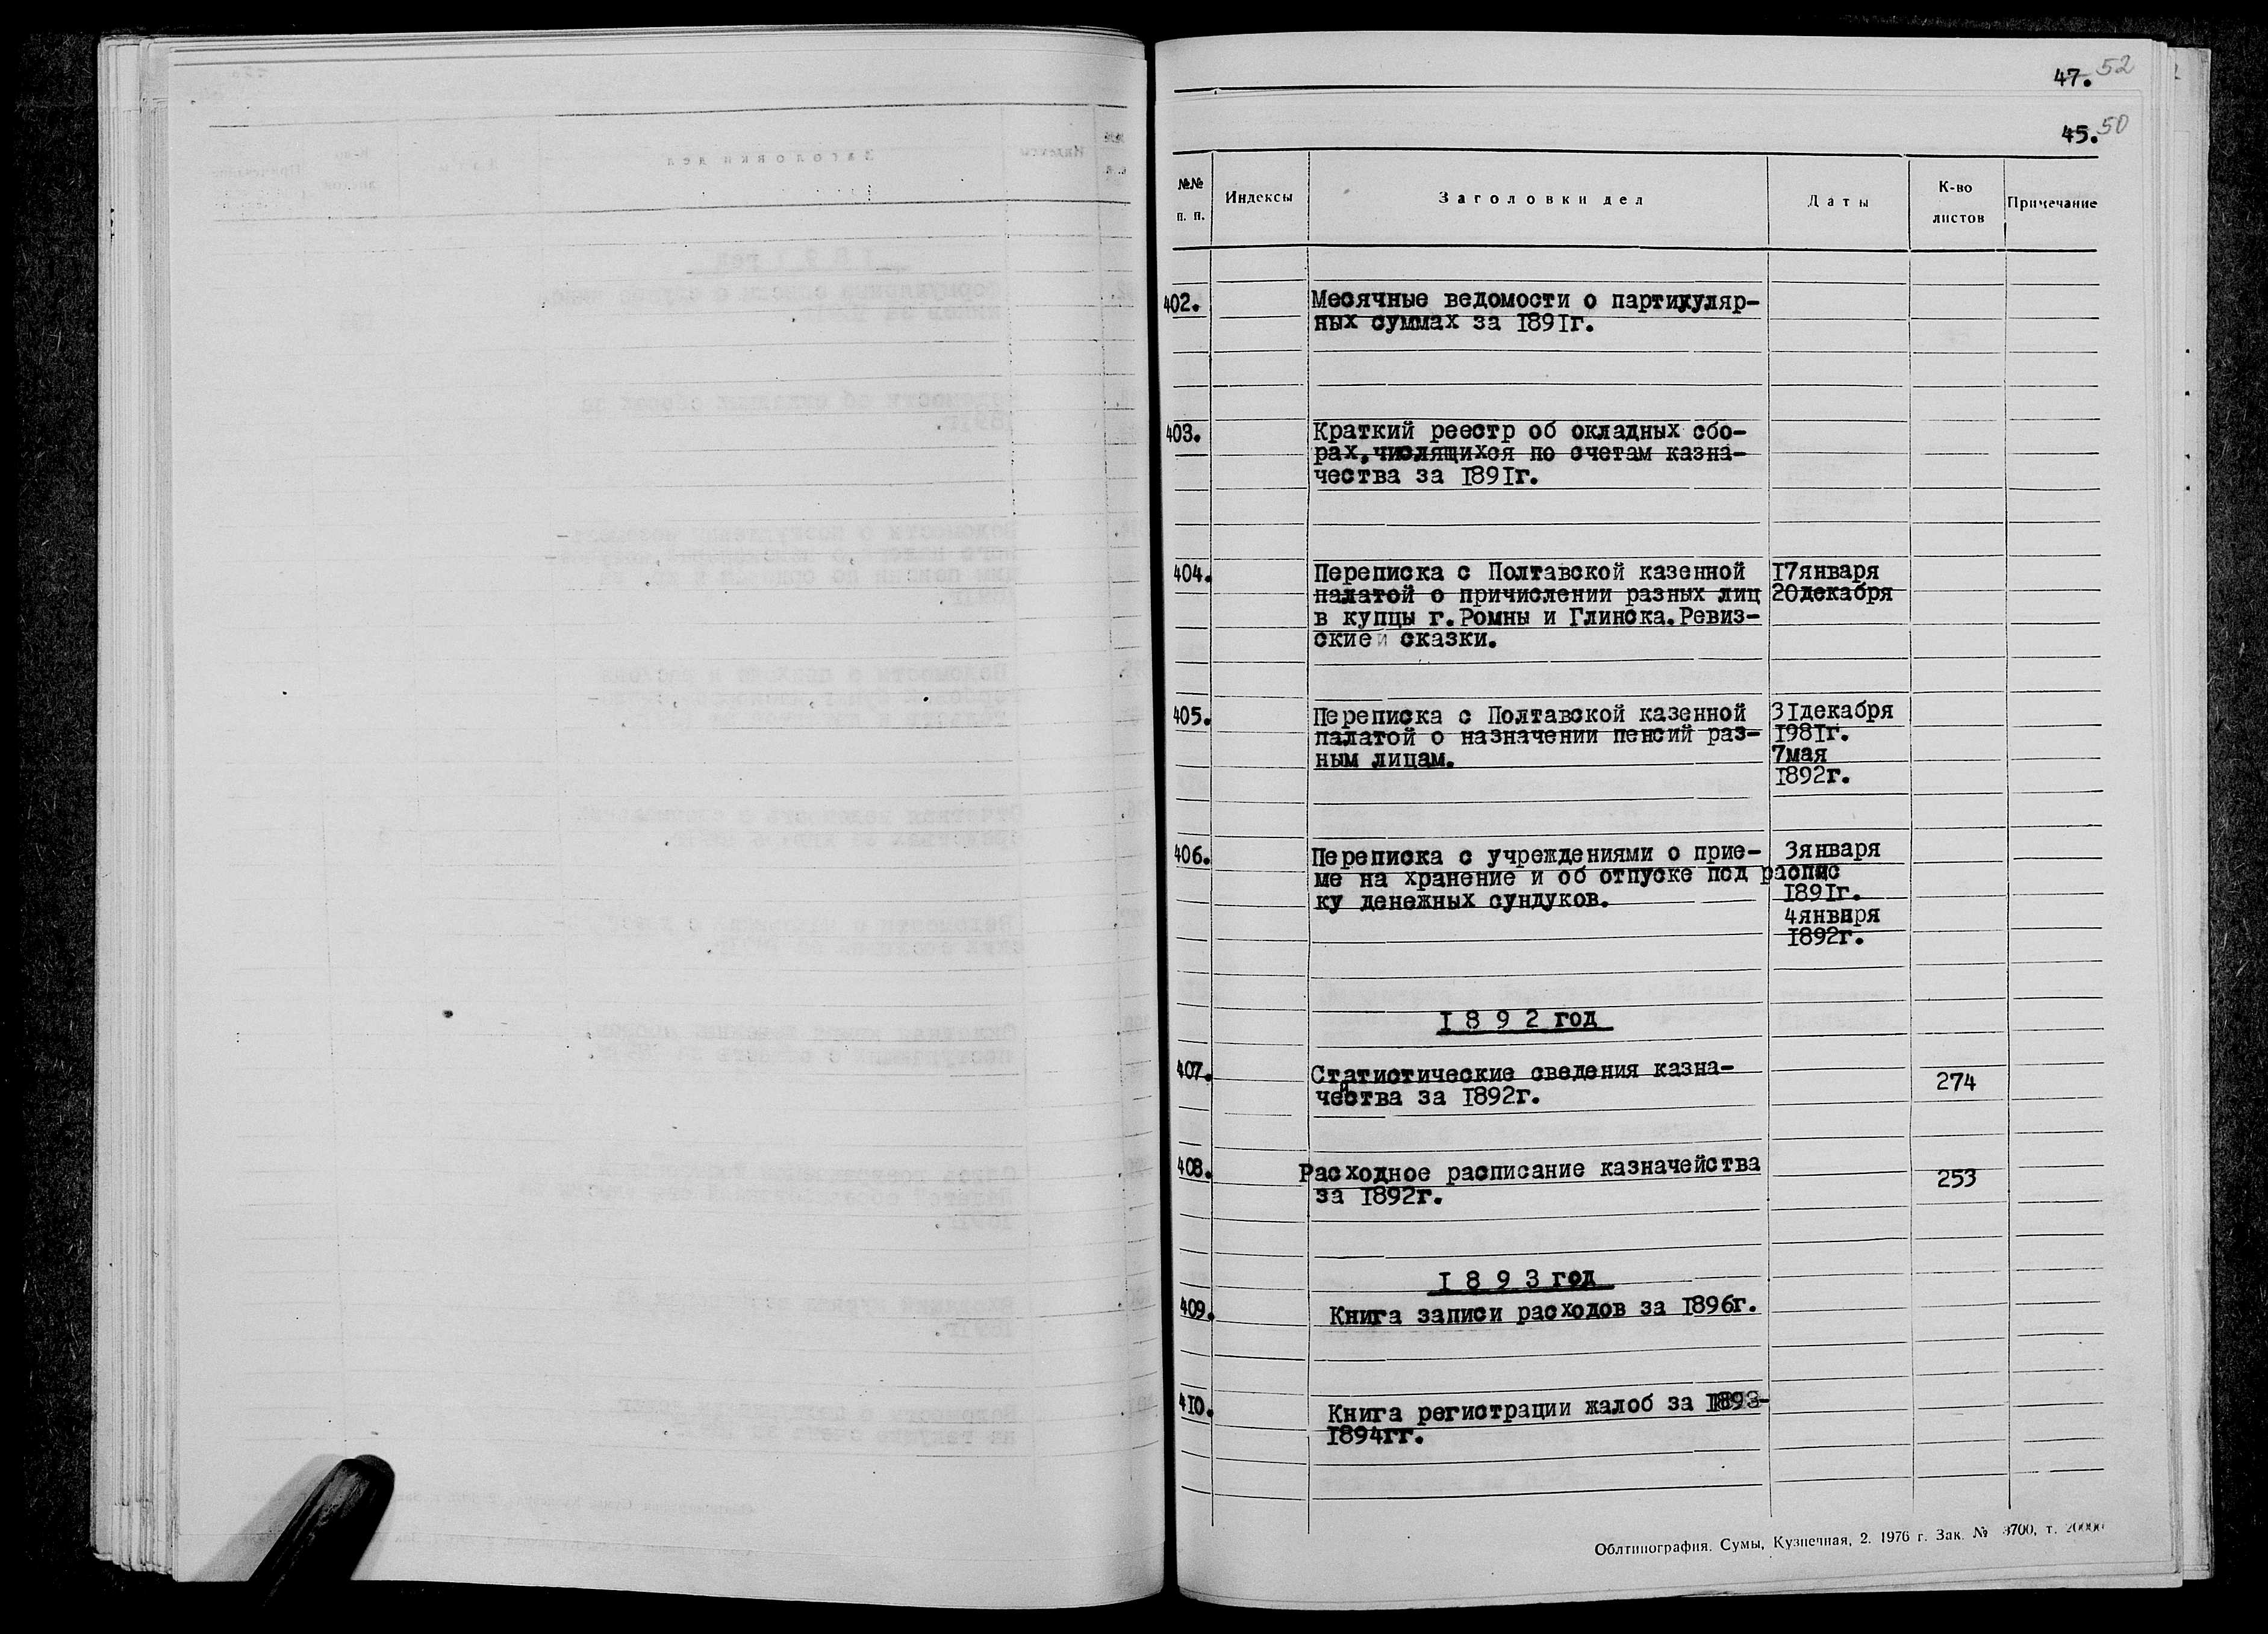 47. 52
45. 50
№№ п. п.
Индексы
Заголовки дел
Даты
К-во листов
Примечание
402. Месячные ведомости о партикуляр-
ных суммах за 1891г.
403. Краткий реестр об окладных сбо-
рах,числящихся по счетам казна-
чества за 1891г.
404. Переписка с Полтавской казенной 17января
палатой о причислении разных лиц 20декабря
в купцы г.Ромны и Глинска.Ревиз-
ские и сказки.
405. Переписка с Полтавской казенной 31декабря
палатой о назначении пенсий раз- 1981г.
ным лицам. 7мая
1892г.
406. Переписка с учреждениями о прие- 3января
ме на хранение и об отпуске под распис
ку денежных сундуков. 1891г.
4января
1892г.
1892 год
407. Статистические сведения казна-
чейства за 1892г. 274
408. Расходное расписание казначейства
за 1892г. 253
1893 год
409. Книга записи расходов за 1896г.
410. Книга регистрации жалоб за 1893-
1894гг.
Облтипография. Сумы, Кузнечная, 2. 1976 г. Зак. № 3700, т. 20000